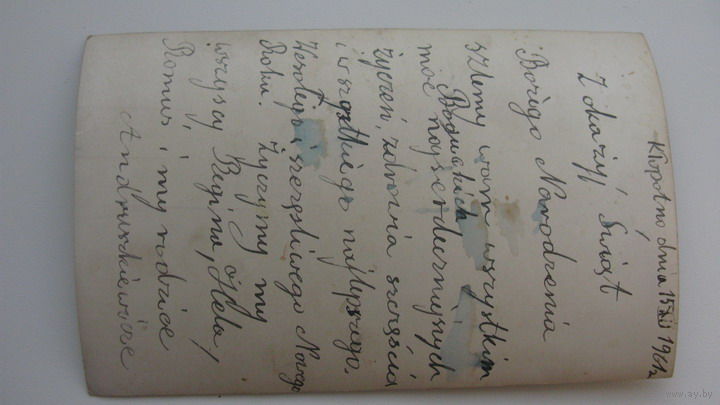 Kłopotno dnia 15 XII 1961r
Z okazyj Świąt
Bożego Narodzenia
szlemy wam wszystkim
Boduckich
moc najserdeczniejszych
życzeń, zdrowia szczęścia
i wszystkiego najlepszego.
Wesołego i szczęśliwego Nowego
Roku. Życzymy my
wszyscy Regina, Hela,
Romus, i my rodzice
Andruszkiewicze
www.ay.by